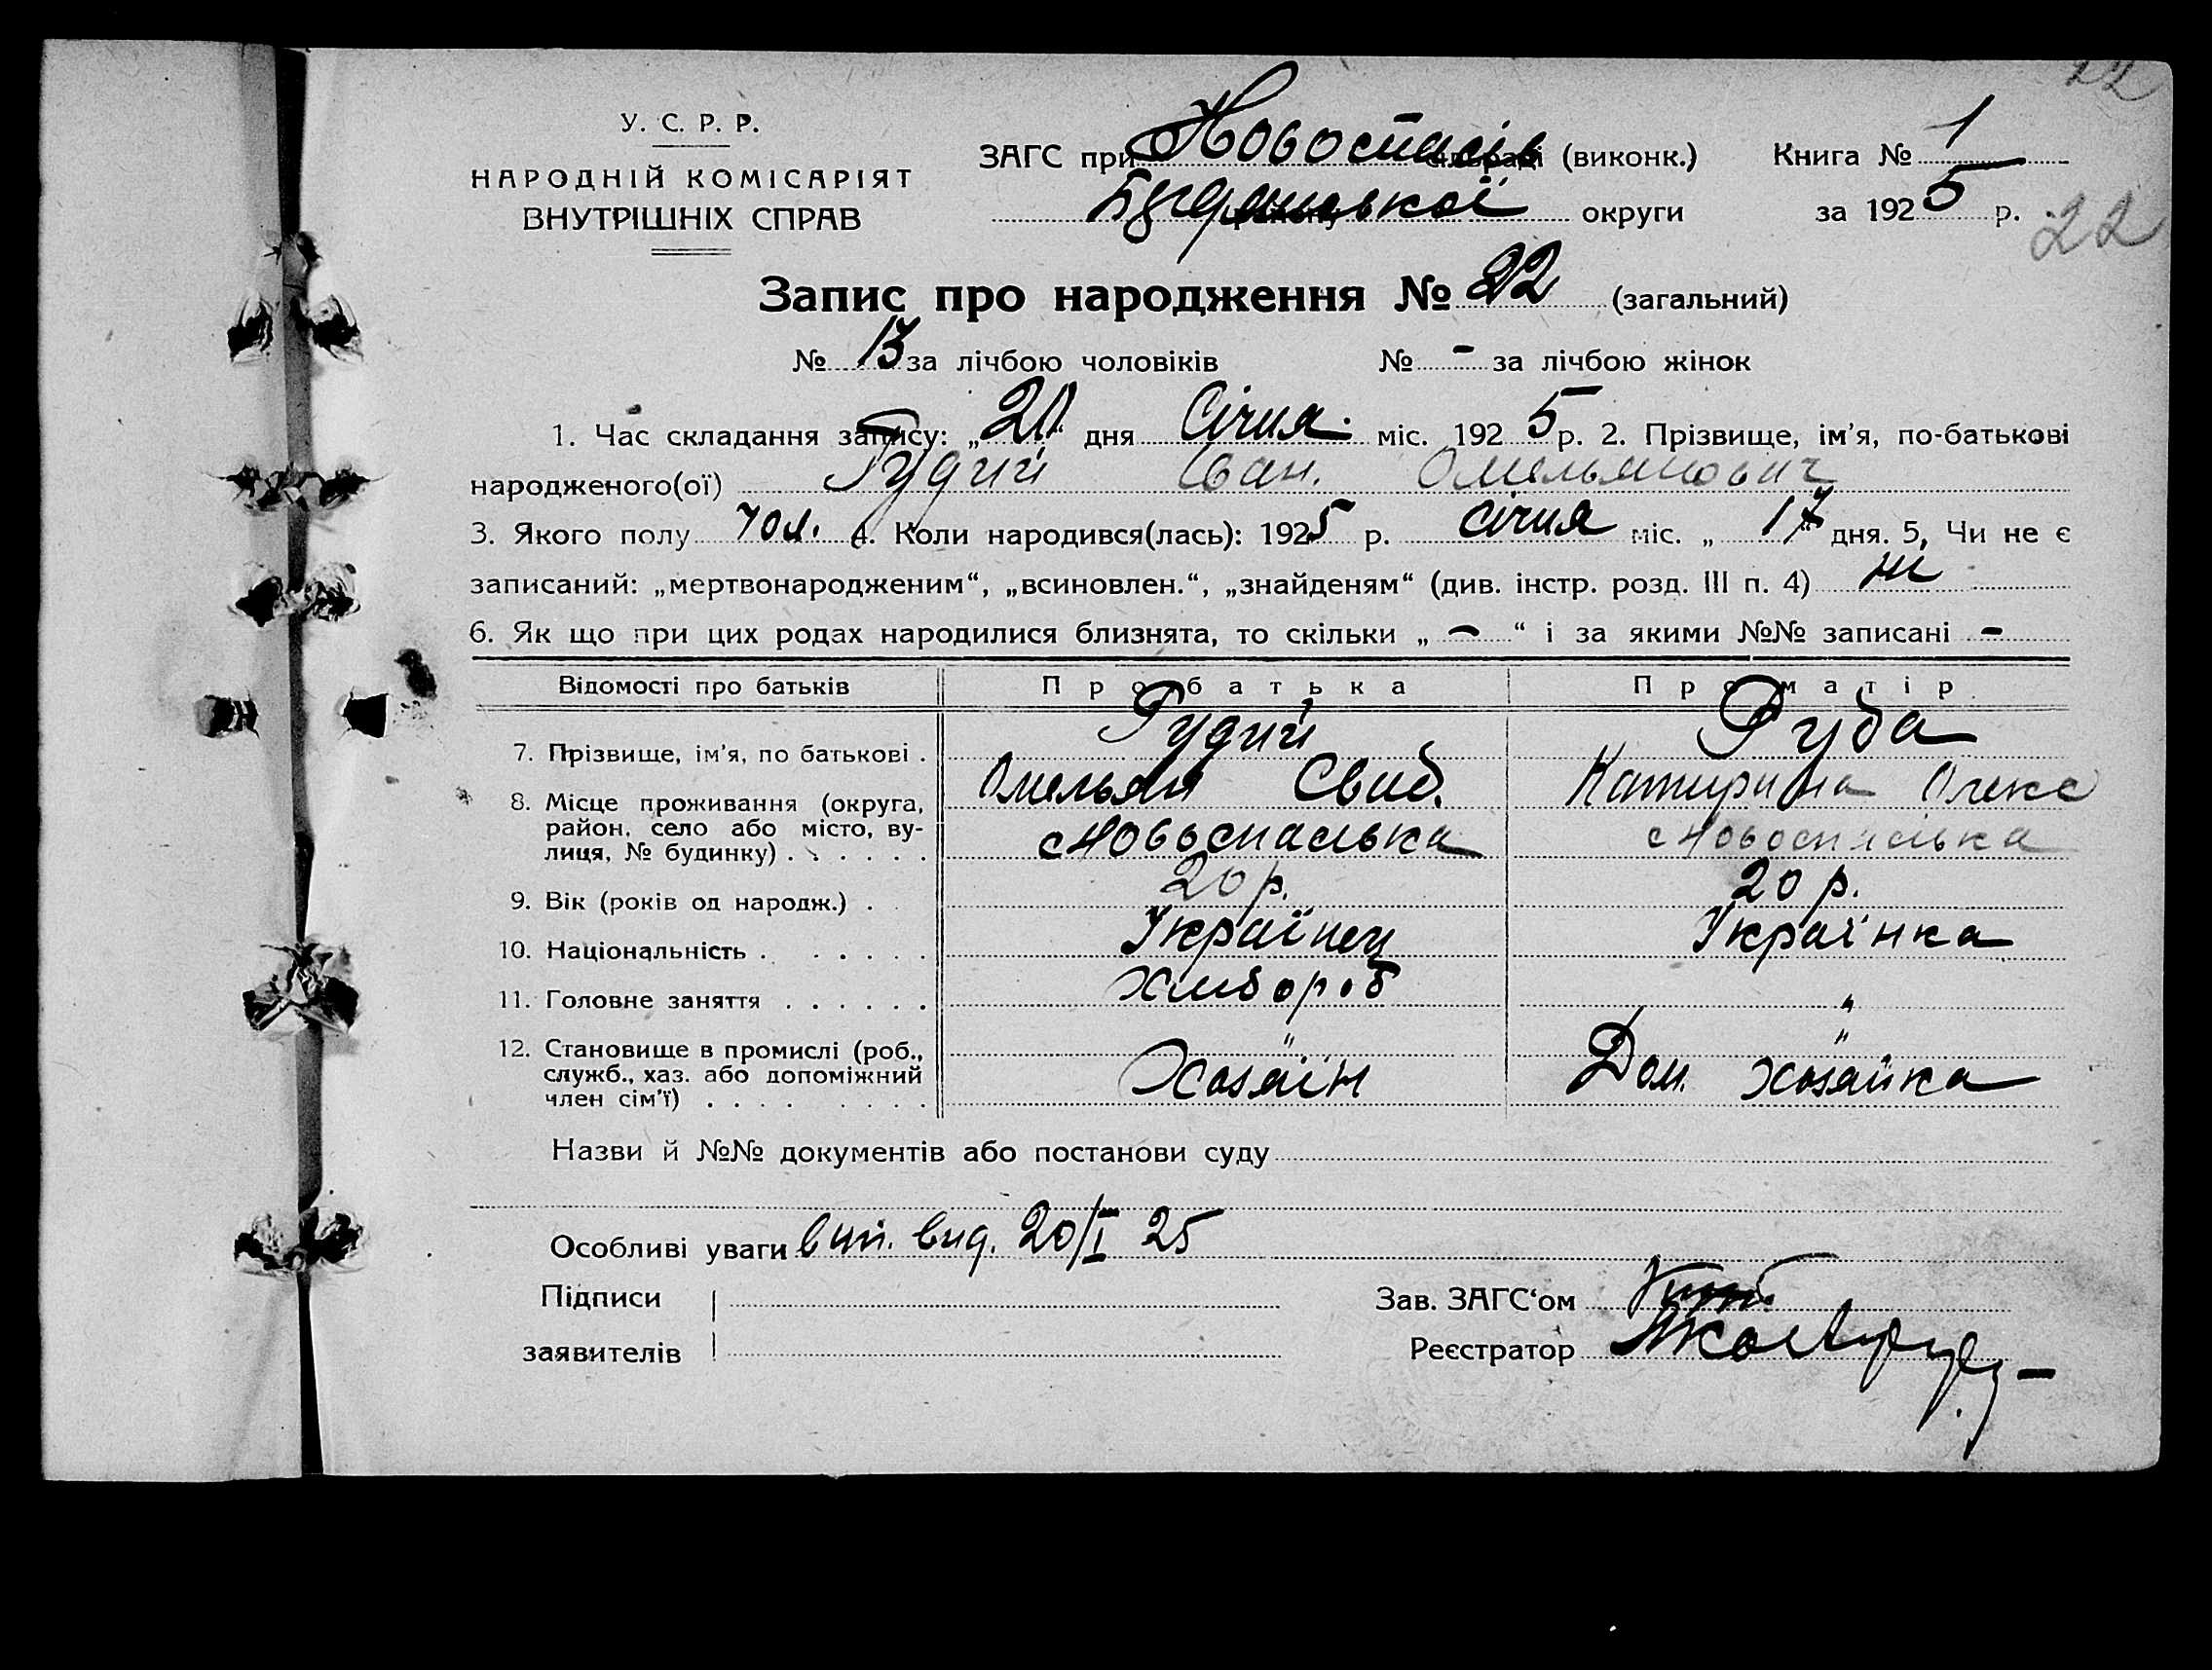 22
У. С. Р. Р.
НАРОДНІЙ КОМІСАРІЯТ
ВНУТРІШНІХ СПРАВ
ЗАГС при Новоспасів (виконк.)
округи
Книга № 1
за 1925 р.
22
Запис про народження № 22 (загальний)
№ 13 за лічбою чоловіків № - за лічбою жінок
1. Час складання запису: „20“ дня Січня міс. 1925 р. 2. Прізвище, ім’я, по-батькові
народженого(ої) Гудий Іван. Омельянович
3. Якого полу чол. 4. Коли народився(лась): 1925 р. січня міс. „17 дня. 5, Чи не є
записаний: „мертвонародженим“, „всиновлен.“, „знайденям“ (див. інстр. розд. III п. 4) ні
6. Як що при цих родах народилися близнята, то скільки „ - “ і за якими №№ записані -
Відомості про батьків Про батька Про матір
7. Прізвище, ім’я, по батькові . Гудий Омельян Руба Катирина Олекс
8. Місце проживання (округа, район, село або місто, вулиця, № будинку) . . . . . . с Новоспаська с Новоспаська
9. Вік (років од народж.) . 20 р. 20 р.
10. Національність . . . . . . Українец Українка
11. Головне заняття . . . . . . Хлибороб "
12. Становище в промислі (роб., служб., хаз. або допоміжний член сім’ї) . . . . . . . . " Хозяін " Дом. хозяйка
Назви й №№ документів або постанови суду
Особливі уваги вип. вид. 20/I 25
Підписи
заявителів
Зав. ЗАГС‘ом
Реєстратор